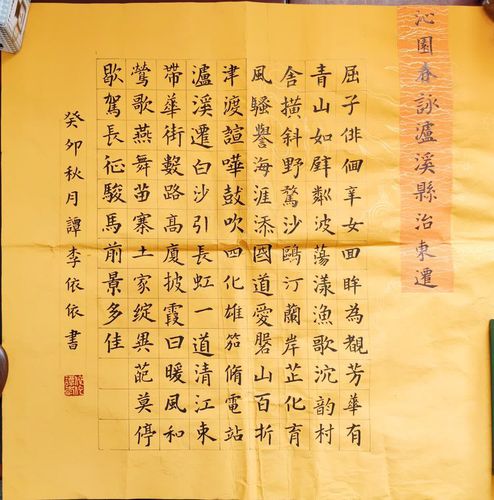 沁園春詠瀘溪縣治東遷
屈子俳佪辛女回眸為觀芳華有
青山如屏粼波蕩漾漁歌沉韵村
舍橫斜野鶩沙鷗汀蘭岸芷化育
風騷譽海涯添國道愛磐山百折
津渡諠嘩鼓吹四化雄笳脩電站
瀘溪遷白沙引長虹一道清江東
帶華街數路高廈披霞日暖風和
鶯歌燕舞苗寨土家綻異葩莫停
歇駕長征駿馬前景多佳
癸卯秋月譚李依依書